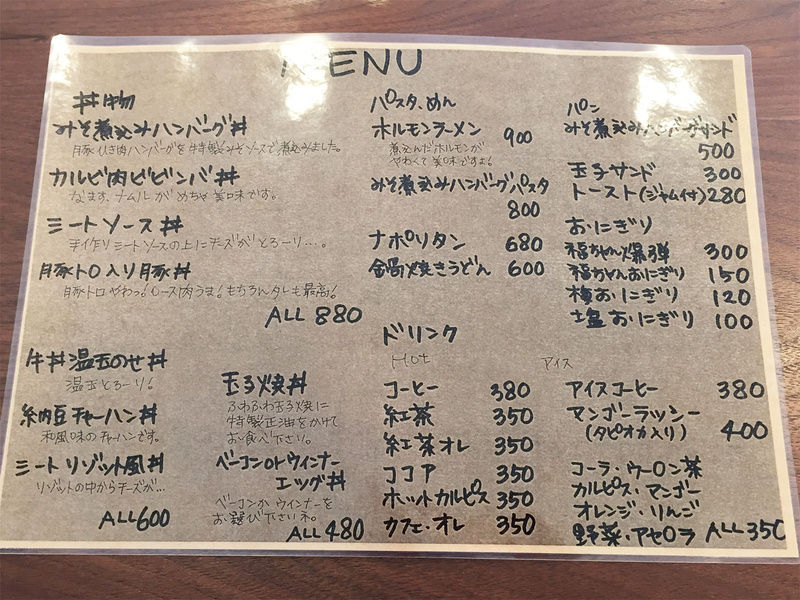 MENU
丼物
みそ煮込みハンバーグ丼
豚ひき肉ハンバーグを特製みそソースで煮込みました。
カルビ肉ビビンバ丼
なます、ナムルがめちゃ美味です。
ミートソース丼
手作りミートソースの上にチーズがとろーり…。
豚トロ入り豚丼
豚トロやわっ!ロース肉うま!もちろんタレも最高!
ALL 880
牛丼温玉のせ丼
温玉とろーり!
納豆チャーハン丼
和風味のチャーハンです。
ミートリゾット風丼
リゾットの中からチーズが…
ALL 600
玉子焼丼
ふわふわ玉子焼に
特製正油をかけて
お食べ下さい。
ベーコンorウインナー
エッグ丼
ベーコンかウインナーを
お選び下さいネ。
ALL 480
パスタ、めん
ホルモンラーメン 900
煮込んだホルモンが
やわくて美味ですよ!
みそ煮込みハンバーグパスタ
800
ナポリタン 680
鍋焼きうどん 600
パン
みそ煮込みハンバーグサンド
500
玉子サンド 300
トースト(ジャム付) 280
おにぎり
福ちゃん爆弾 300
福ちゃんおにぎり 150
梅おにぎり 120
塩おにぎり 100
ドリンク
Hot
コーヒー 380
紅茶 350
紅茶オレ 350
ココア 350
ホットカルピス 350
カフェ・オレ 350
アイス
アイスコーヒー 380
マンゴーラッシー
(タピオカ入り) 400
コーラ・ウーロン茶
カルピス・マンゴー
オレンジ・りんご
野菜・アセロラ ALL 350